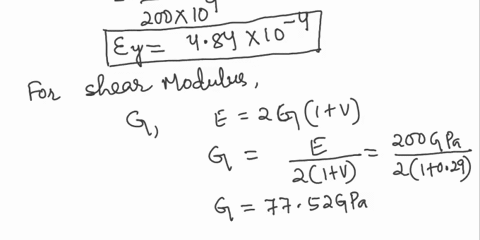 200×10⁹
Ey = 4.84×10⁻⁴
For shear Modulus,
G, E = 2G(1+V)
G = E / 2(1+V) = 200GPa / 2(1+0.29)
G = 77.52GPa